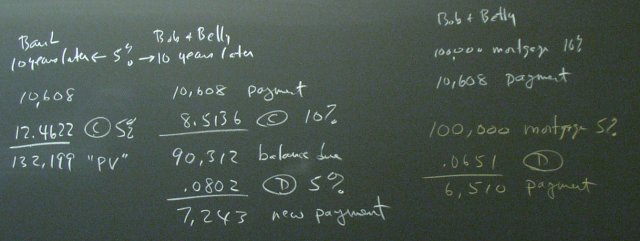 Bank
10 years later ← 5% → 10 years later
Bob + Betty
10,608
12.4622 Ⓒ 5%
132,199 "PV"
10,608 payment
8.5136 Ⓒ 10%
90,312 balance due
.0802 Ⓓ 5%
7,243 new payment
Bob + Betty
100,000 mortgage 10%
10,608 payment
100,000 mortgage 5%
.0651 Ⓓ
6,510 payment